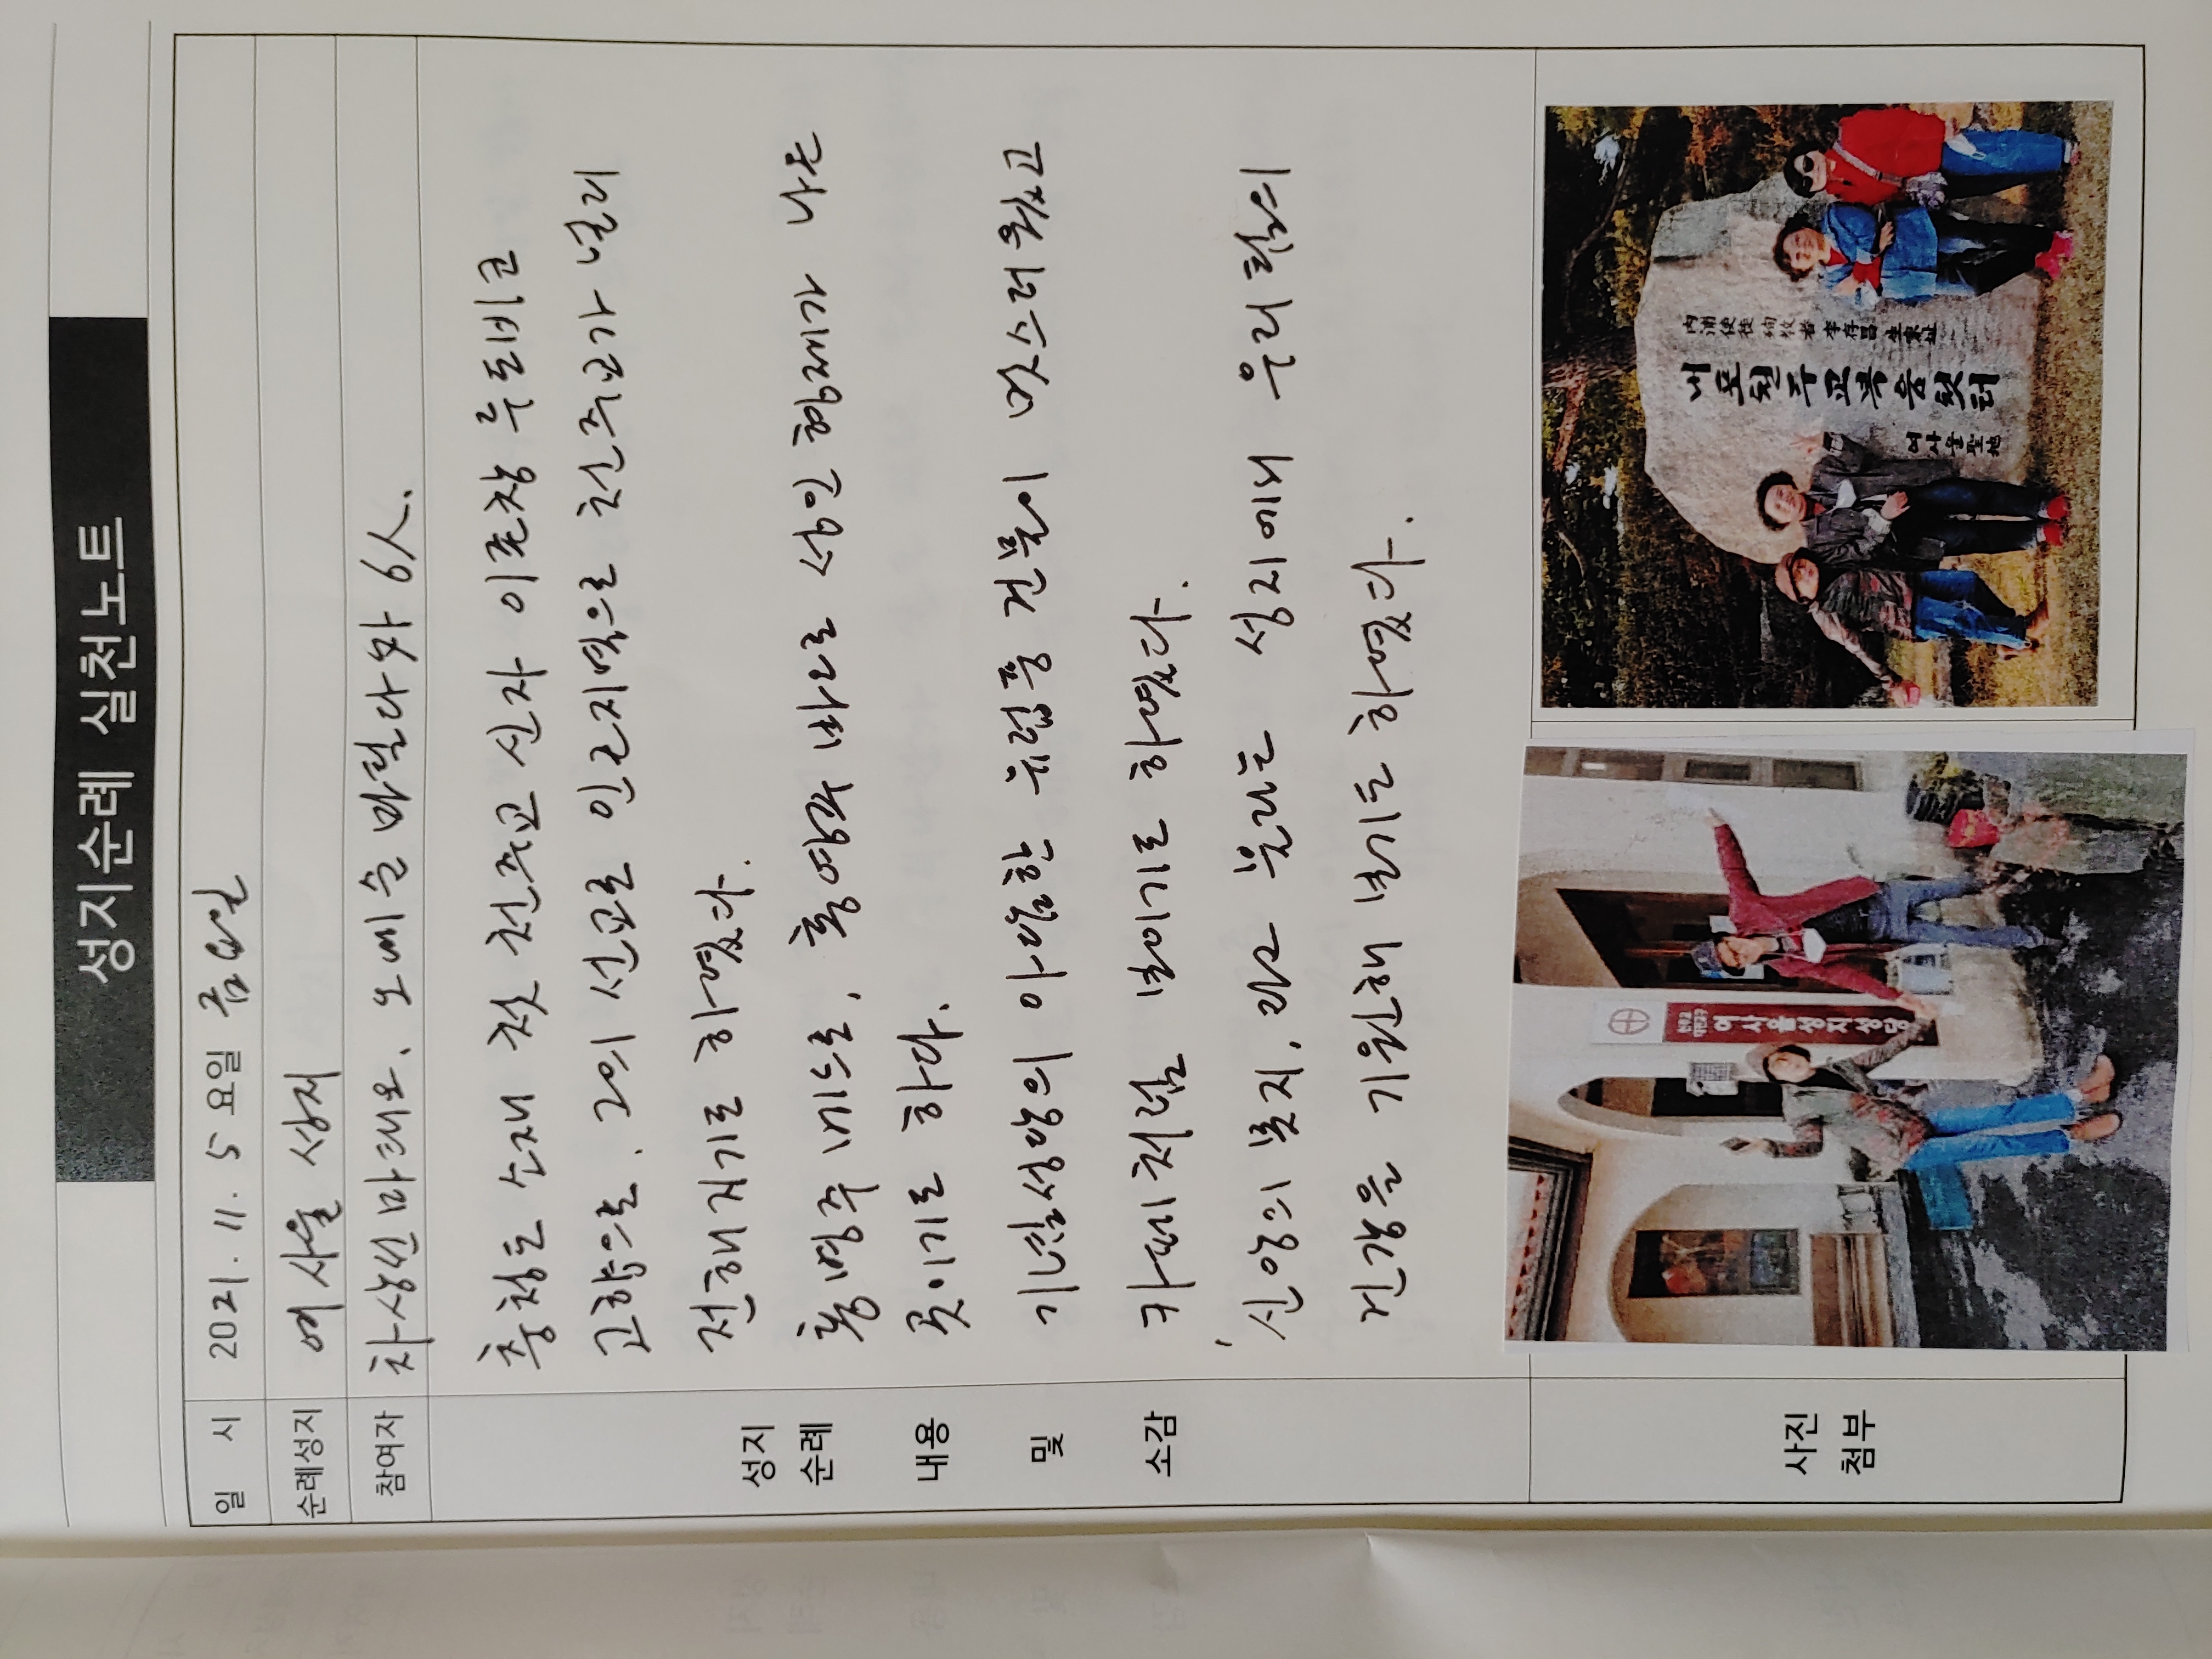 성지순례 실천노트
일 시 2021. 11. 5 요일 금요일
순례성지 여사울 성지
참여자 차상선 마태오. 오세순 마틸다 外 6人.
성지
순례
내용
및
소감
충청도 소재 첫 천주교 신자 이존창 루도비코
고향으로, 그의 선교로 인근지역으로 천주교가 널리
전해지기도 하였다.
홍병주 베드로, 홍영주 바오로 성인 형제가 나온
곳이기도 하다.
기념성당의 아담한 유럽풍 건물이 멋스러웠고
카페처럼 보이기도 하였다.
'신앙의 못자리, 라고 불리는 성지에서 우리 팀의
건강을 기원해 보기도 하였다.
사진
첨부
천주교
대전교구
여사울성지성당
內浦使徒 殉敎者 李存昌 生家址
내포천주교복음첫터
여사울聖地